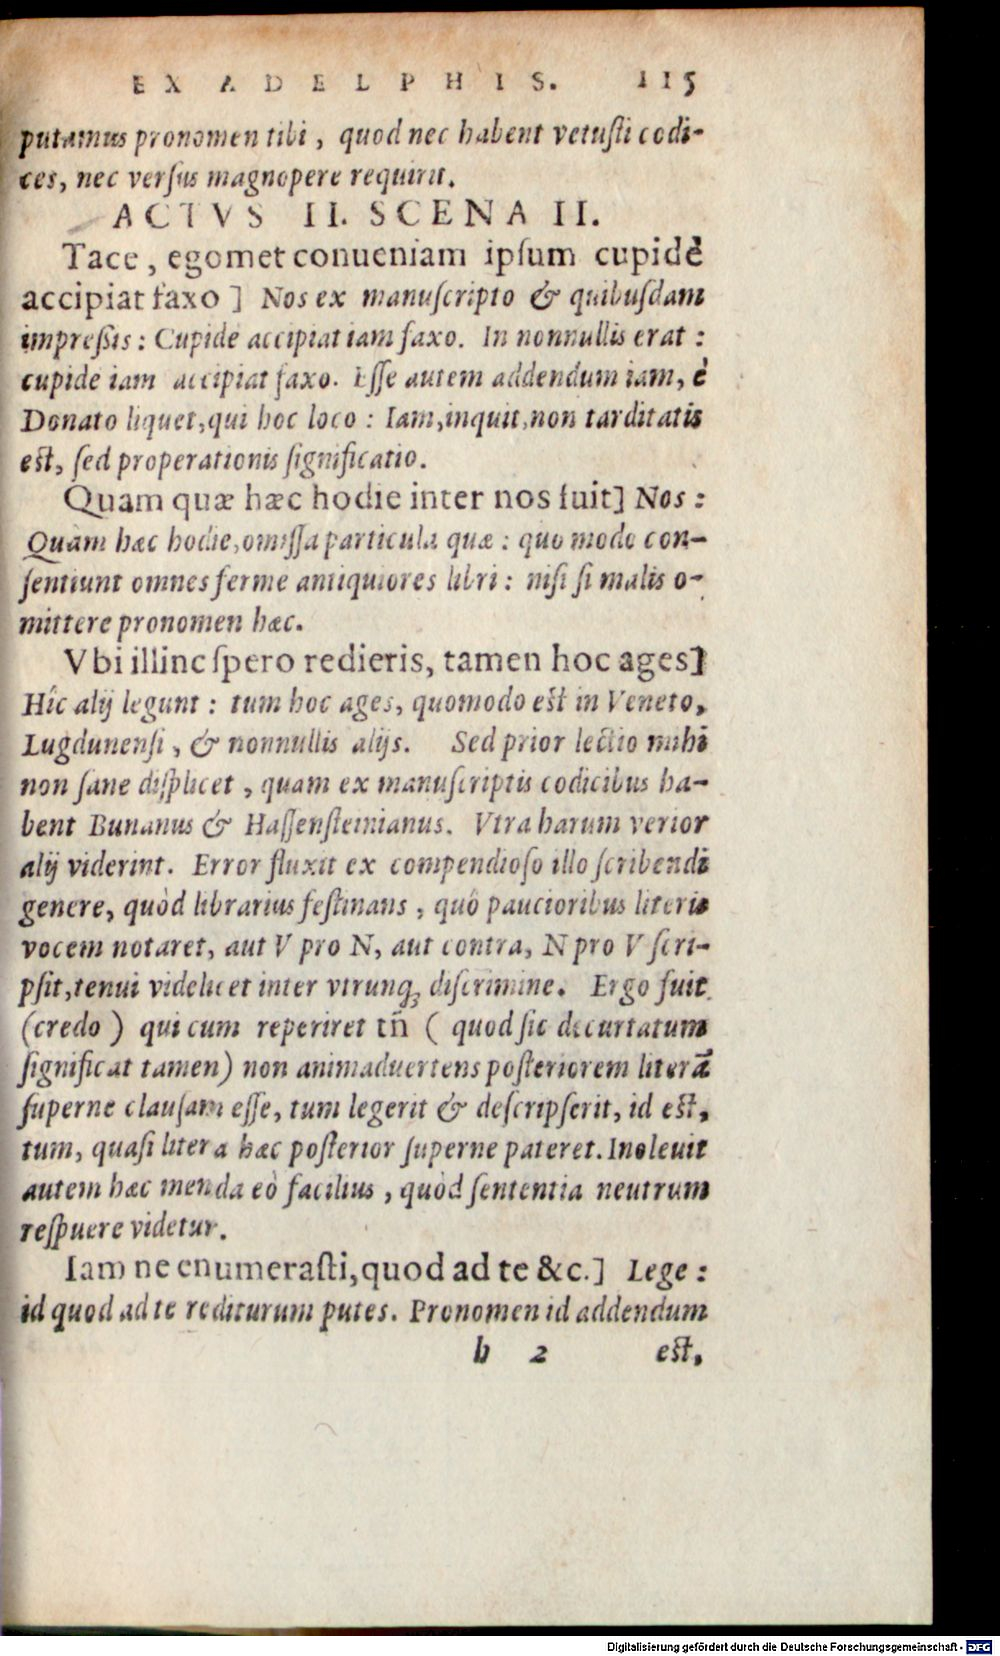 EX ADELPHIS. 115
putamus pronomen tibi, quod nec habent vetuſti codi-
ces, nec verſus magnopere requirit.
ACTVS II. SCENA II.
Tace, egomet conueniam ipſum cupidè
accipiat faxo ] Nos ex manuſcripto & quibuſdam
impreßis: Cupide accipiat iam faxo. In nonnullis erat:
cupide iam accipiat faxo. Eſſe autem addendum iam, è
Donato liquet, qui hoc loco: Iam, inquit, non tarditatis
est, ſed properationis ſignificatio.
Quam quæ hæc hodie inter nos fuit] Nos:
Quàm hæc hodie, omiſſa particula quæ: quo modo con-
ſentiunt omnes ferme antiquiores libri: niſi ſi malis o-
mittere pronomen hæc.
Vbi illinc ſpero redieris, tamen hoc ages]
Hîc alij legunt: tum hoc ages, quomodo est in Veneto,
Lugdunenſi, & nonnullis alijs. Sed prior lectio mihi
non ſane diſplicet, quam ex manuſcriptis codicibus ha-
bent Bunanus & Haſſenſteinianus. Vtra harum verior
alij viderint. Error fluxit ex compendioſo illo ſcribendi
genere, quòd librarius feſtinans, quô paucioribus literis
vocem notaret, aut V pro N, aut contra, N pro V ſcri-
pſit, tenui videlicet inter vtrunq; diſcrimine. Ergo fuit
(credo) qui cum reperiret tn̄ (quod ſic decurtatum
ſignificat tamen) non animaduertens poſteriorem literā
ſuperne clauſam eſſe, tum legerit & deſcripſerit, id est,
tum, quaſi litera hæc poſterior ſuperne pateret. Inoleuit
autem hæc menda eò facilius, quòd ſententia neutrum
reſpuere videtur.
Iam ne enumeraſti, quod ad te &c.] Lege:
id quod ad te rediturum putes. Pronomen id addendum
b 2 est,
Digitalisierung gefördert durch die Deutsche Forschungsgemeinschaft - DFG